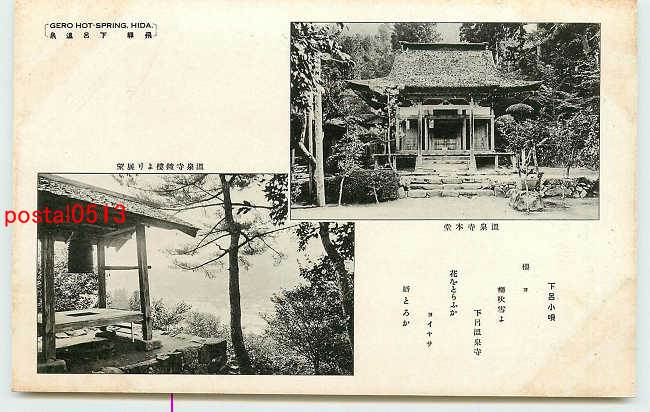 GERO HOT-SPRING, HIDA.
泉溫呂下 驒飛
望展りよ樓鐘寺泉溫
postal0513
堂本寺泉溫
下呂小唄
櫻ヨ
櫻吹雪よ
下呂溫泉寺
花をとらふか
ヨイヤサ
婿とろか